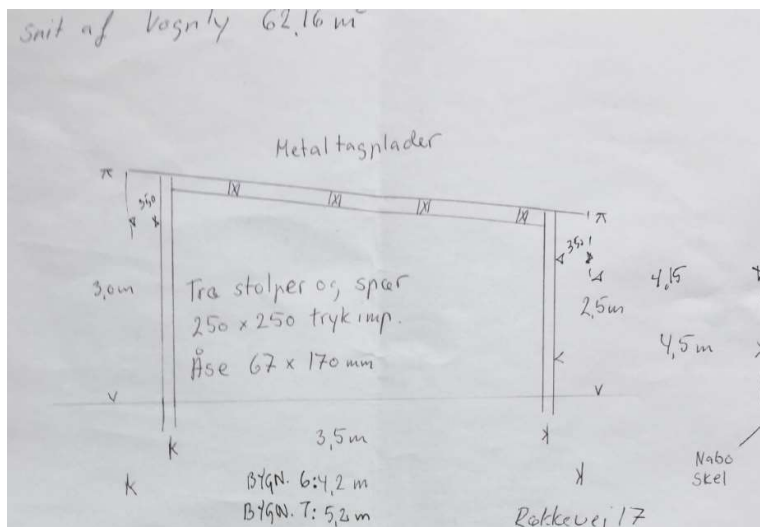 Snit af Vognly 62,16 m²
Metaltagplader
350
350
3,0m
Træ stolper og spær
250 x 250 tryk imp.
Åse 67 x 170 mm
2,5m
4,15
4,5 m
3,5m
BYGN. 6: 4,2 m
BYGN. 7: 5,2 m
Nabo
skel
Rakkevej 17